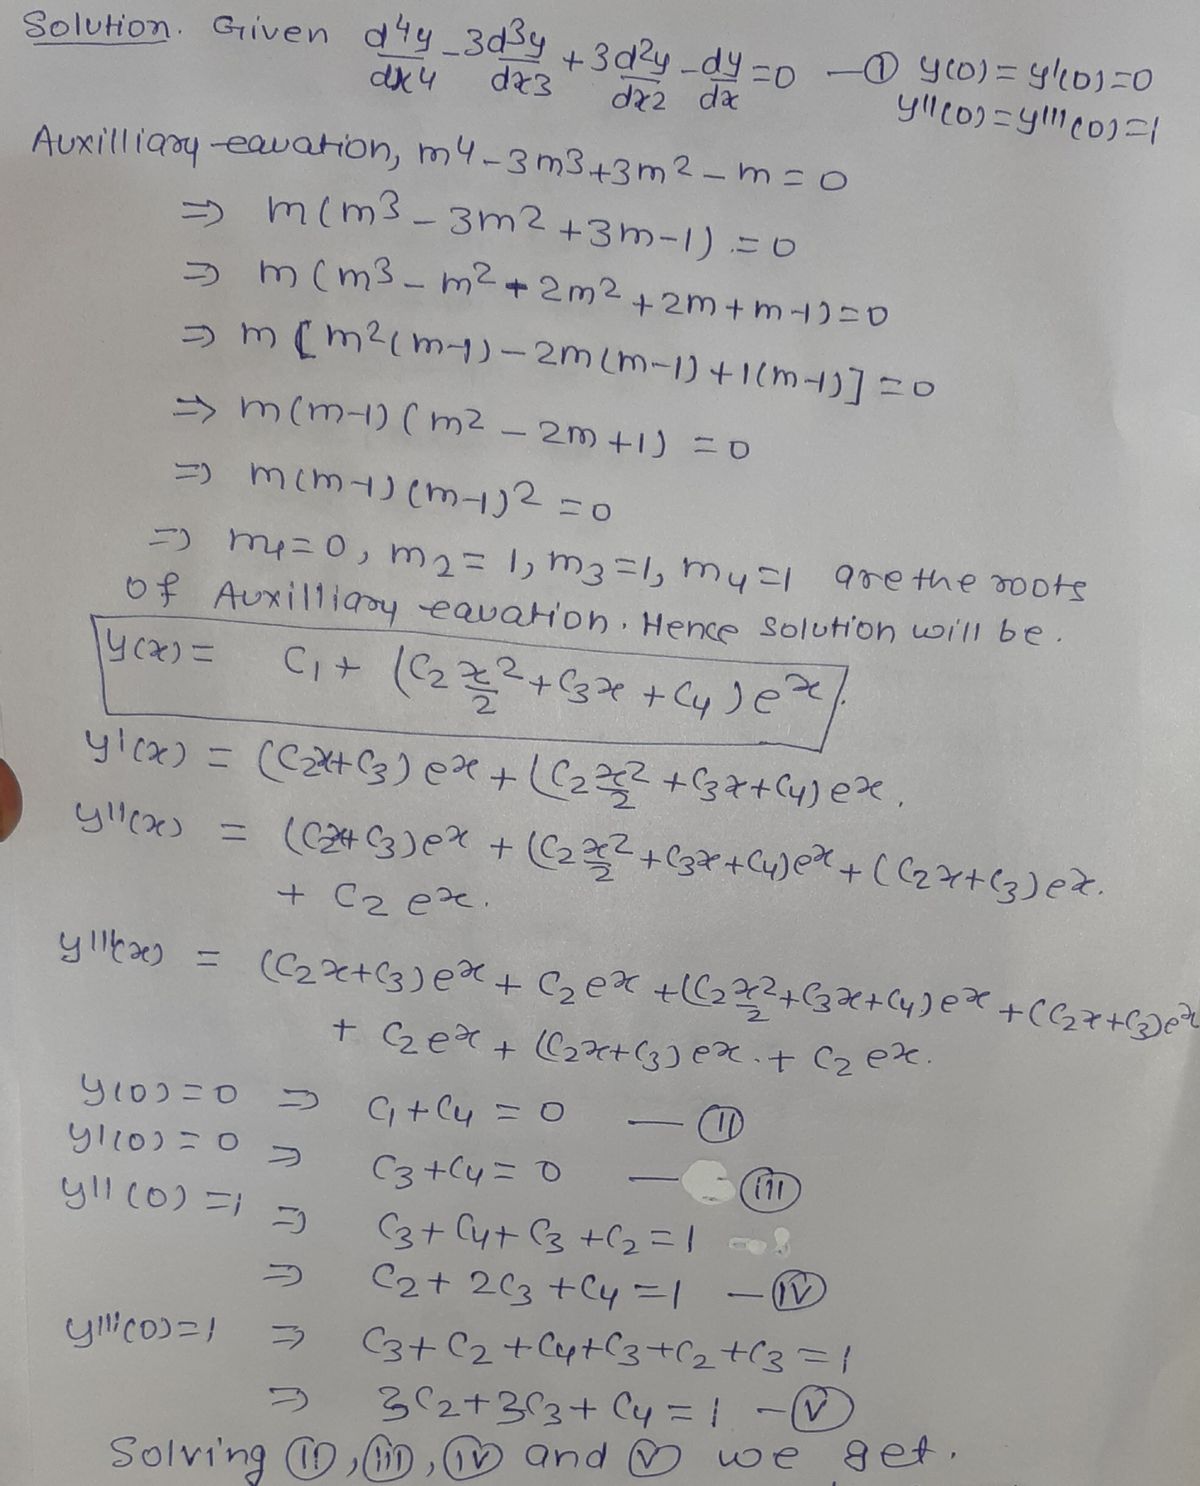 Solution. Given d⁴y/dx⁴ - 3d³y/dx³ + 3d²y/dx² - dy/dx = 0 — ① y(0) = y'(0) = 0
y''(0) = y'''(0) = 1
Auxilliary eauation, m⁴ - 3m³ + 3m² - m = 0
⇒ m(m³ - 3m² + 3m - 1) = 0
⇒ m(m³ - m² + 2m² + 2m + m - 1) = 0
⇒ m[m²(m-1) - 2m(m-1) + 1(m-1)] = 0
⇒ m(m-1)(m² - 2m + 1) = 0
⇒ m(m-1)(m-1)² = 0
⇒ m₁ = 0, m₂ = 1, m₃ = 1, m₄ = 1 are the roots
of Auxilliary eauation. Hence solution will be.
y(x) = C₁ + (C₂ x²/2 + C₃x + C₄) eˣ.
y'(x) = (C₂x + C₃) eˣ + (C₂ x²/2 + C₃x + C₄) eˣ.
y''(x) = (C₂x + C₃) eˣ + (C₂ x²/2 + C₃x + C₄) eˣ + (C₂x + C₃) eˣ.
+ C₂ eˣ.
y'''(x) = (C₂x + C₃) eˣ + C₂ eˣ + (C₂ x²/2 + C₃x + C₄) eˣ + (C₂x + C₃) eˣ
+ C₂ eˣ + (C₂x + C₃) eˣ. + C₂ eˣ.
y(0) = 0 ⇒ C₁ + C₄ = 0 — (II)
y'(0) = 0 ⇒ C₃ + C₄ = 0 — (III)
y''(0) = 1 ⇒ C₃ + C₄ + C₃ + C₂ = 1
⇒ C₂ + 2C₃ + C₄ = 1 — (IV)
y'''(0) = 1 ⇒ C₃ + C₂ + C₄ + C₃ + C₂ + C₃ = 1
⇒ 3C₂ + 3C₃ + C₄ = 1 — (V)
Solving (II), (III), (IV) and (V) we get.